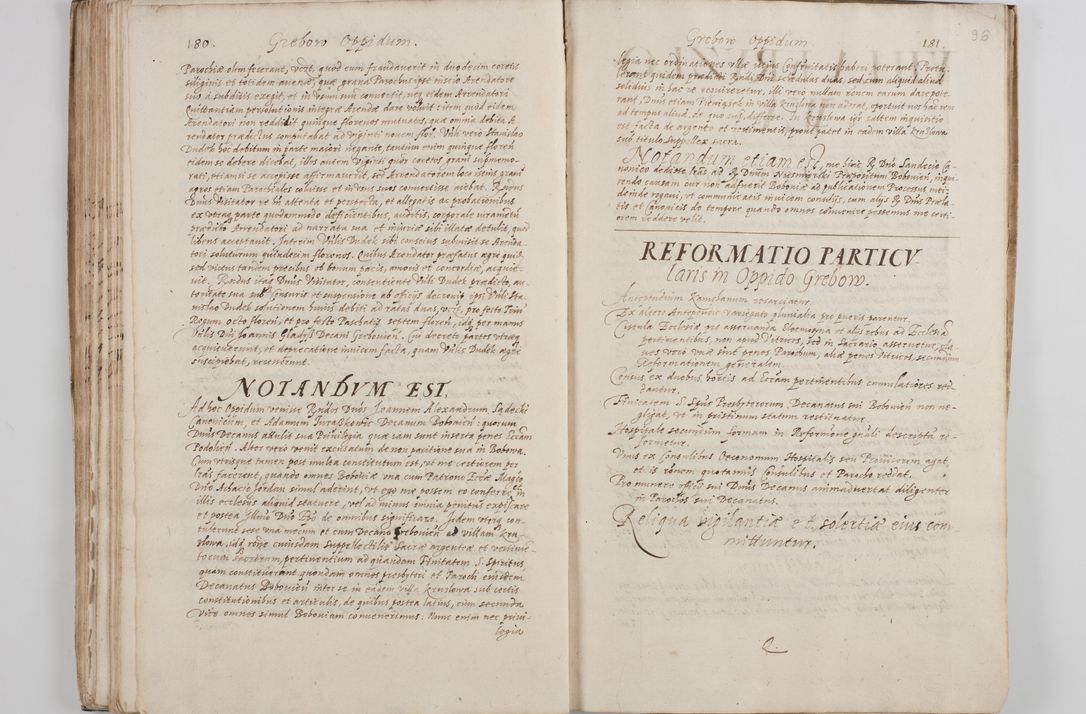 180. Grebow Oppidum.
Parochiæ olim fecerant, vczt, quod eum fraudaverit in duodecim coretis
siliginis et totidem avenæ, quæ grana Parochus ipse inscio Arendatore
suo à subditis exegit, et in usum suum convertit, nec eidem Arrendatori
Quittantiam persolutionis integræ Arendæ dare voluit: item quod eidem
Arendatori non reddidit quinque florenos mutuatos, quæ omnia debita A-
rendator prædictus computabat ad viginti novem flor. Vbli vero Stanislao
Dudek hoc debitum in parte maiori negante, tantum enim quinque floren
eidem se debere dicebat, illos autem viginti quos coretos grani supmemo-
rati, etiamsi se accepisse affirmaverit, sed Arendatorem loco istius grani
agros etiam Parochiales coluisse et in usus suos convertisse aiebat. Rndus
Dnus Visitator re bn attenta et perspecta, et allegatis ac probationibus
ex utraq parte quodammodo deficientibus, auditis, corporale iuramentum
prædicto Arrendatori ad narrata sua et iniuriæ sibi illatæ detulit, quod
libens acceptavit. Interim Vblis Dudek sibi conscius submisit se Arenda-
tori soluturum quindecim florenos. Quibus Arendator præfatus ægre quidem
sed victus tandem precibus et bonum pacis, amoris et concordiæ, acquie-
vit. Rndus itaq Dnus Visitator, consentiente Vbli Dudek prædicto, au-
toritate sua sub Censuris et suspensione ab officijs decrevit ipsi Vbli Sta-
nislao Dudek solutionem huius debiti ad ratas duas, vczt, pro festo Trium
Regum octo floren, et pro festo Paschatis septem floren, idq per manus
Vblis Dni Ioannis Gladisz Decani Grebovien. Cui decreto partes utræq
acquieverunt, et deprecatione invicem facta, quam Vblis Dudek ægre
suscipiebat, recesserunt.
NOTANDVM EST,
Ad hoc Oppidum venisse Rndos Dnos Ioannem Alexandrum Sądecki
Canonicum, et Adamum Juraszkovic Decanum Bobovien: quorum
Dnus Decanus attulit sua Privilegia quæ iam sunt inserta penes Ecclam
Podolien. Alter vero venit excusatum de non paritione sua in Bobowa.
Cum utrisque tamen post multa constitutum est, ut me certurem per
lras facerent, quando omnes Boboviæ una cum Patrono Ecclæ Magco
Dno Achacio Iordan simul aderint, ut ego me possem eo conferre, et in
illis ecclesijs aliquid statuere, vel ad minus omnia penitus expiscare
et postea Illmo Dno Epo de omnibus significare. Iidem utriq con-
tulerunt sese una mecum et cum Decano Grebovien ad villam Kru-
slowa, idq rone cuiusdam Suppellectilis Sacræ argenteæ et vestimen-
torum sacrorum, pertinentium ad quandam Ffnitatem S. Spiritus
quam constituerant quondam omnes presbyteri et Parochi eiusdem
Decanatus Bobovien inter se in eadem villa Kruslowa sub certis
constitutionibus et articulis, de quibus postea latius, cum secunda
vice omnes simul Boboviam convenerimus: Nunc enim nec privi-
legia
Grebow Oppidum 181. 96
legia nec ordinationes ullæ eiusce Confraternitatis haberi poterant. Protu-
lerant quidem prædicti Rndi Dni schedulas duas, sed cum aliquid aliud
solidius in hac re requireretur, illi vero nullam ronem earum dare pote-
rant, Dnus etiam Pieniążek in villa Kruslowa non aderat, oportuit nos hac rem
ad tempus aliud, de quo sup, differre. In Kruslowa ipsa saltem inquisitio
est facta de argento et vestimentis, prout patet in eadem villa Kruslowa
sub titulo Suppellex sacra.
Notandum etiam est, me hinc R Dno Sandecio Ca-
nonico dedisse lras ad R Dnum Niesmierski Præpositum Bobovien, inqui-
rendo causam cur non adfuerit Boboviæ ad publicationem Processus mei:
deinde rogavi, ut communicatis invicem consilijs, cum alijs R Dnis Præla-
tis et Canonicis de tempore quando omnes convenire possemus me certi-
orem reddere velit.
REFORMATIO PARTICV
laris in Oppido Grebow.
Antependium Kamchanum resarciatur.
Ex altero Antependio variegato pluvialia pro pueris parentur.
Cistula Ecclesiæ pro asservanda Eleemosyna et alijs rebus ad Ecclesiam
pertinentibus, non apud Vitricos, sed in Sacrario asservetur, cla-
ves vero unæ sint penes Parochum, aliæ penes Vitricos, secundum
Reformationem generalem.
Census ex duobus hortis ad Eccam pertinentibus cumulatiores red-
dantur.
Ffnitatem S. Spus Presbyterorum, Decanatus sui Bobovien non ne-
gligat, ut in pristinum statum restituatur.
Hospitale secundum formam in Reformone gnali descriptam re-
formetur.
Unus ex Consulibus Oeconomum Hospitalis seu Provisorem agat,
et is ronem quotannis Consulibus et Parocho reddat.
Pro munere officij sui Dnus Decanus animadvertat diligenter
in Parochos sui Decanatus.
Reliqua vigilantiæ et solertiæ eius com
mittuntur.